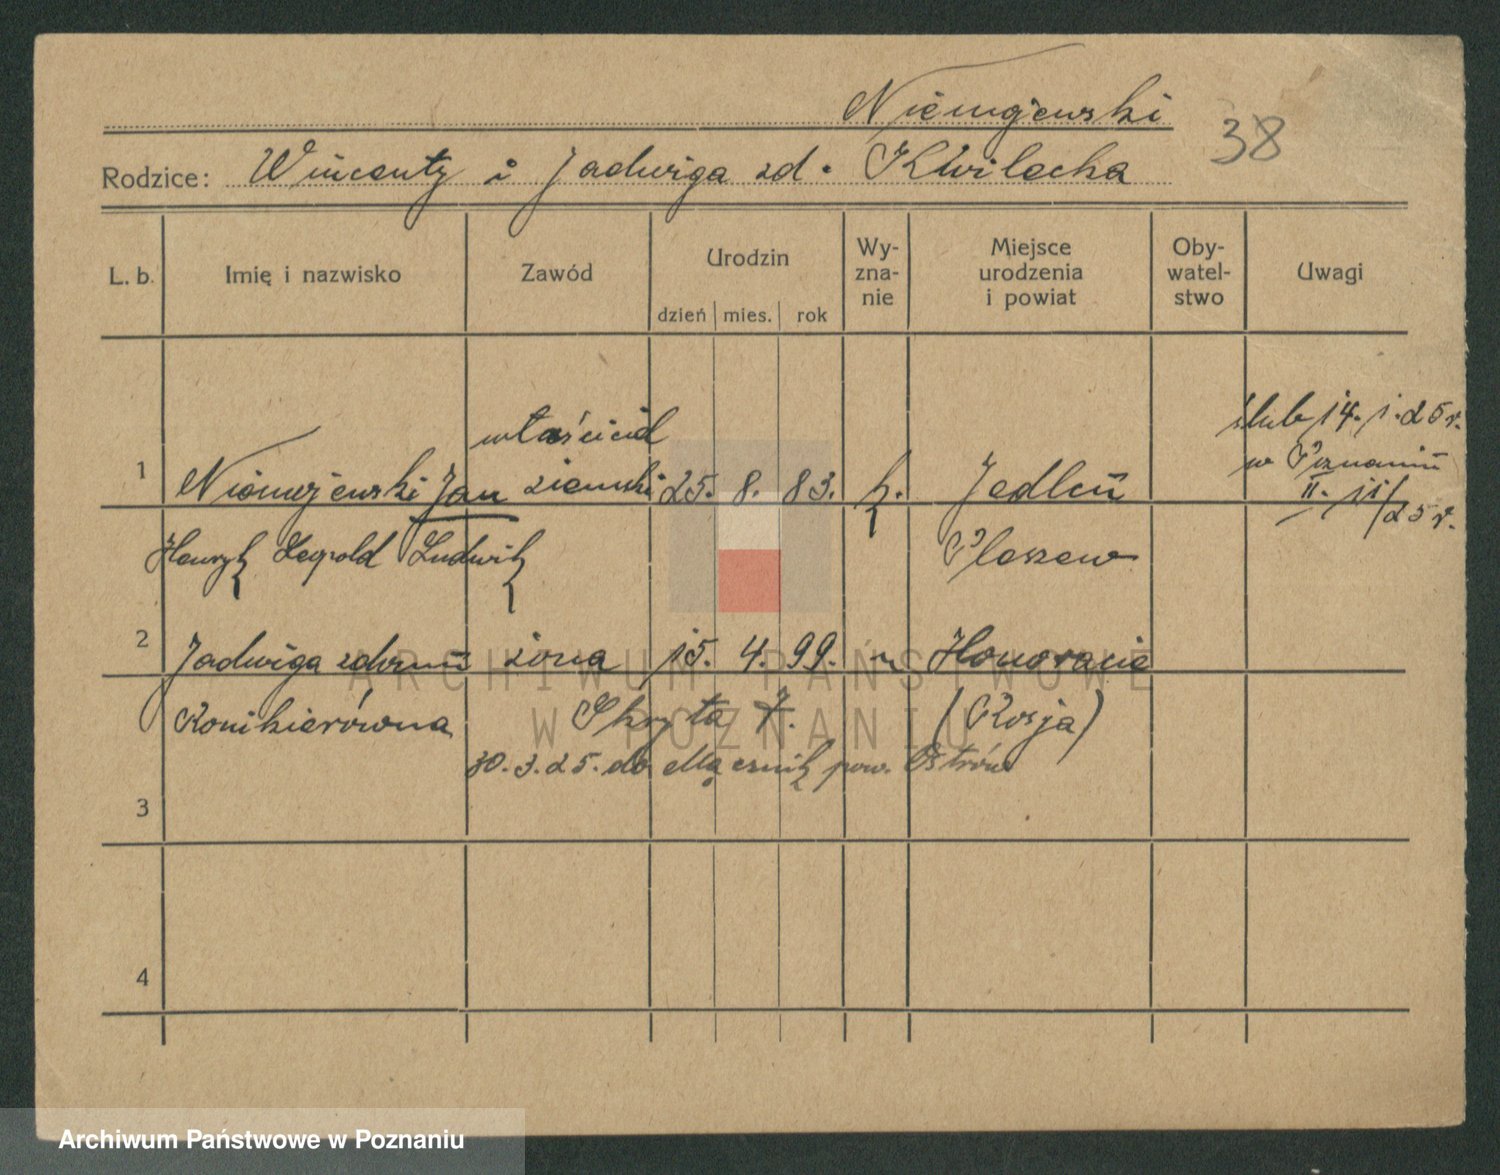 Niemojewski
38
Rodzice: Wincenty i Jadwiga zd. Kwilecka
L. b.
Imię i nazwisko
Zawód
Urodzin
dzień mies. rok
Wy-
zna-
nie
Miejsce
urodzenia
i powiat
Oby-
watel-
stwo
Uwagi
1
Niemojewski Jan
Henryk Leopold Ludwik
właściciel
ziemski
25. 8. 83.
k.
Jedleń
Pleszew
ślub 14. 1. 25 r.
w Poznaniu
II. 11/25 r.
2
Jadwiga
Konikierówna
żona
15. 4. 99.
"
Honoracie
(Rosja)
Skryta 7.
30. 3. 25. do Mącznik pow. Ostrów
3
4
ARCHIWUM PAŃSTWOWE
W POZNANIU
Archiwum Państwowe w Poznaniu